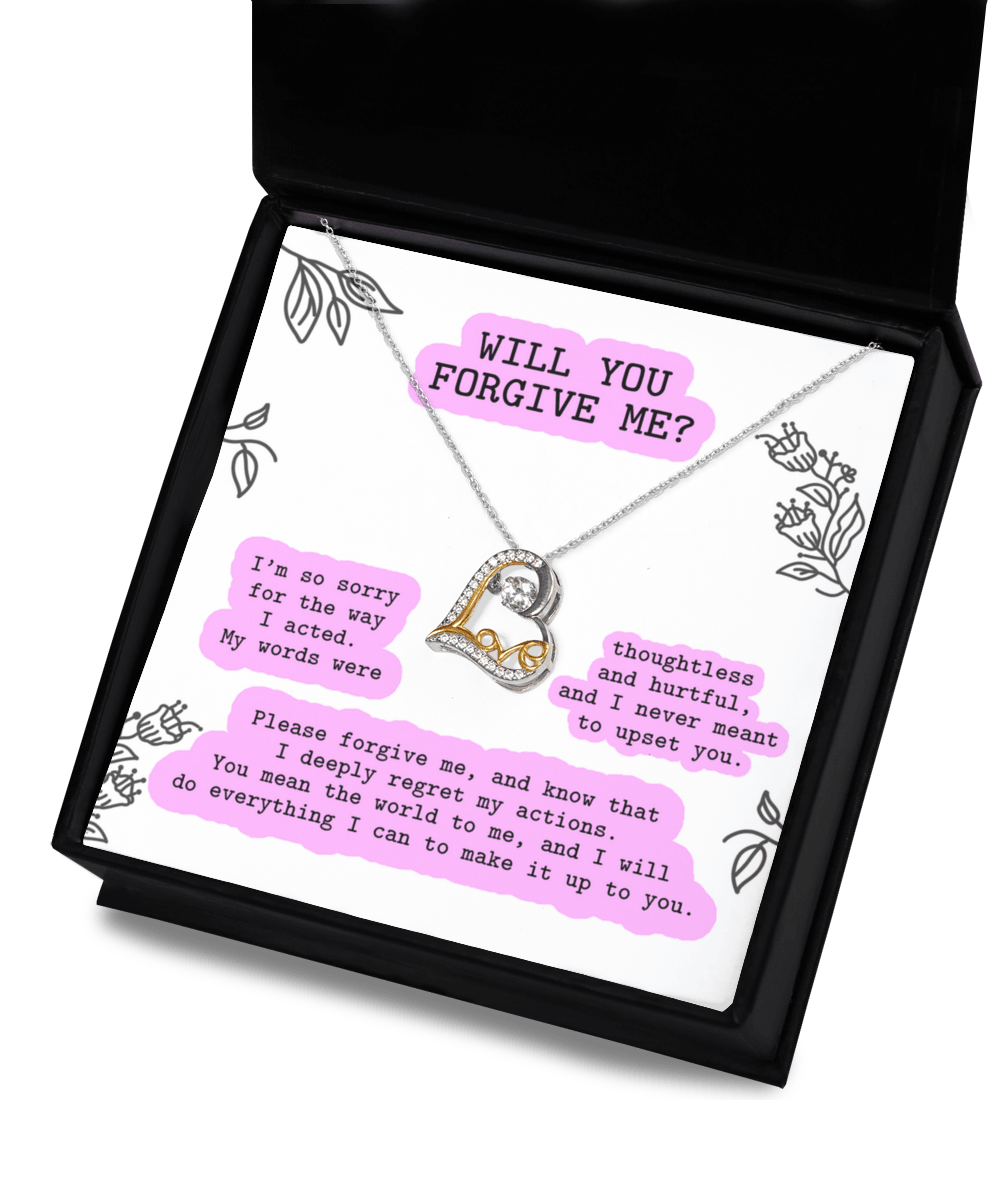 WILL YOU
FORGIVE ME?
I'm so sorry
for the way
I acted.
My words were
thoughtless
and hurtful,
and I never meant
to upset you.
Love
Please forgive me, and know that
I deeply regret my actions.
You mean the world to me, and I will
do everything I can to make it up to you.